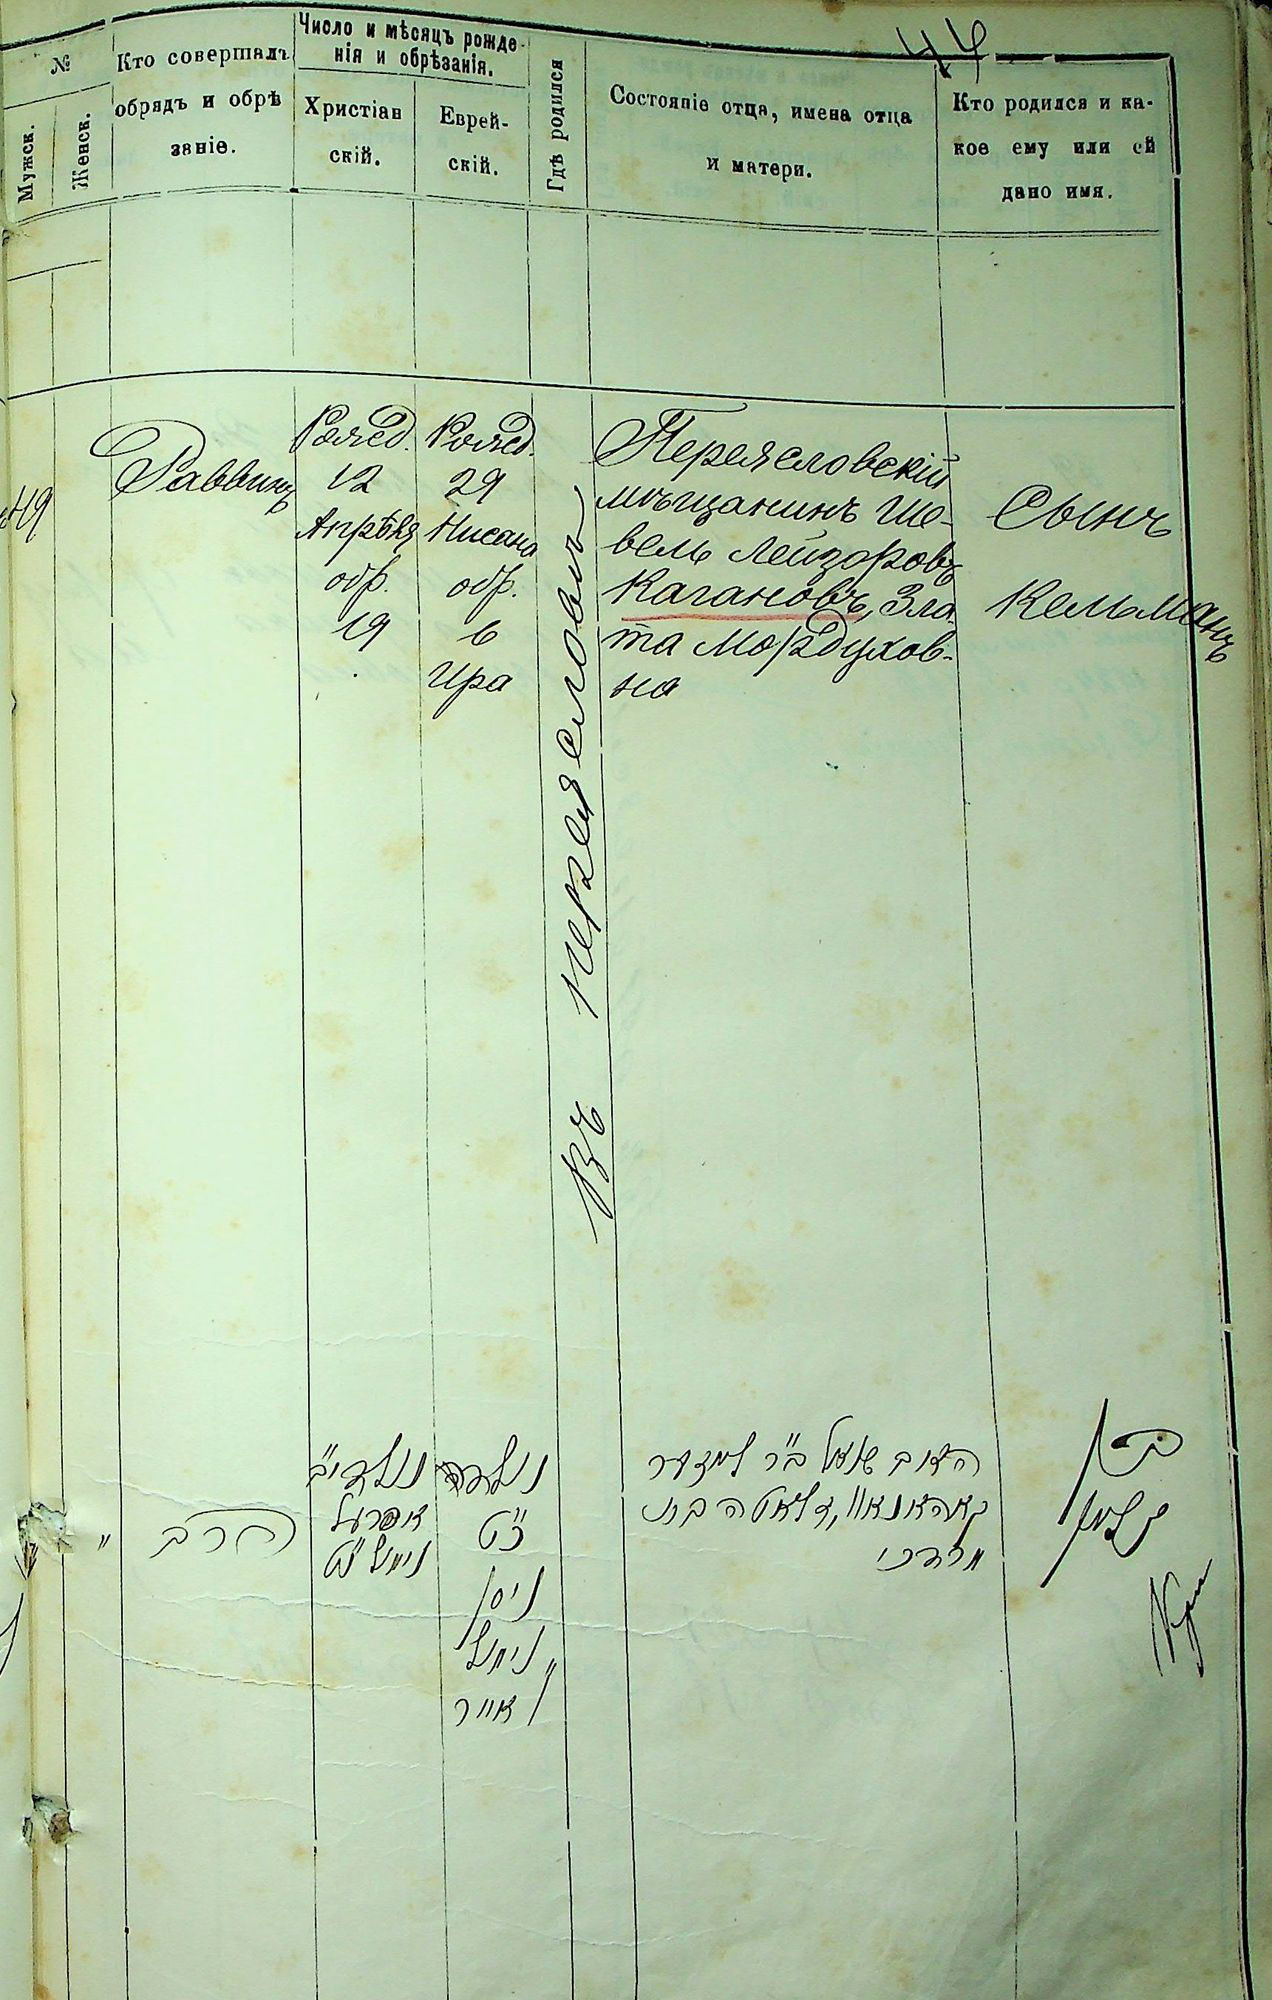 44
№
Мужск.
Женск.
Кто совершалъ
обрядъ и обрѣ
заніе.
Число и мѣсяцъ рожде-
нія и обрѣзанія.
Христіан
скій.
Еврей-
скій.
Гдѣ родился
Состояніе отца, имена отца
и матери.
Кто родился и ка-
кое ему или ей
дано имя.
49
Раввинъ
Рожд.
12
Апрѣля
обр.
19
Рожд.
29
Нисана
обр.
6
Ира
Въ Переяславлѣ
Переяславскій
мѣщанинъ Ше-
вель Лейзоровъ
Кагановъ, Зла-
та Мордухов-
на
Сынъ
Кельманъ
הרב
נולד י"ב
אפרעל
נימול י"ט
נולד
כ"ט
ניסן
נימול
ו' אייר
ב"ר
קאהאנאוו, זלאטה בת
מרדכי
בן
קלמן